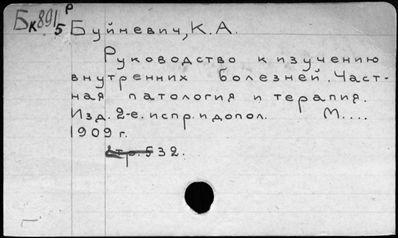 Бк891/5 Р
Буйневич, К. А.
Руководство к изучению
внутренних болезней. Част-
ная патология и терапия.
Изд. 2-е. испр. и допол. М....
1909 г.
стр. 532.